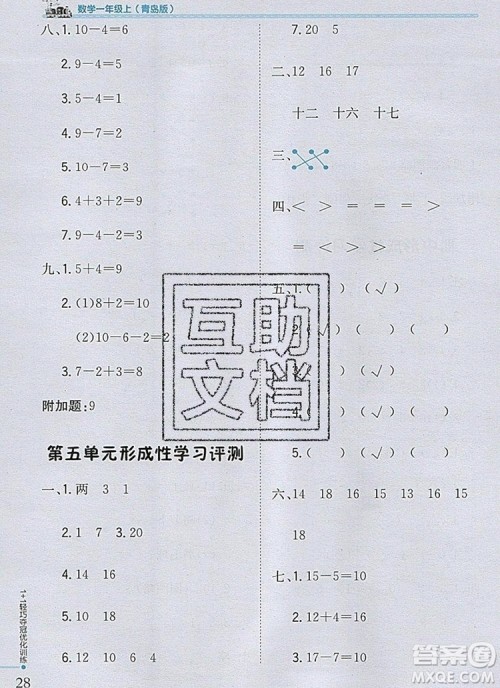 数学一年级上(青岛版)
八、1.10－4=6
2.9－4=5
3.5－4=1
4.9－7=2
5.10－7=3
6.4+3+2=9
7.9－4－2=3
九、1.5+4=9
2.(1)8+2=10
(2)10－6－2=2
3.7－2+3=8
附加题:9
第五单元形成性学习评测
一、1.两 3 1
2.1 7 3.20
4.14 16
5.10 18
6.12 10 6 4
7.20 5
二、12 16 17
十二 十六 十七
三、
四、< > = = = >
= < > > <
五、1.( ) (√)
2.(√) ( )
5.( ) (√) ( )
六、14 18 14 16 15 15
18
七、1.15－5=10
2.12+4=16
3.17－7=10
互助文档
1+1轻巧夺冠优化训练
28
答案圈
MXQE.COM